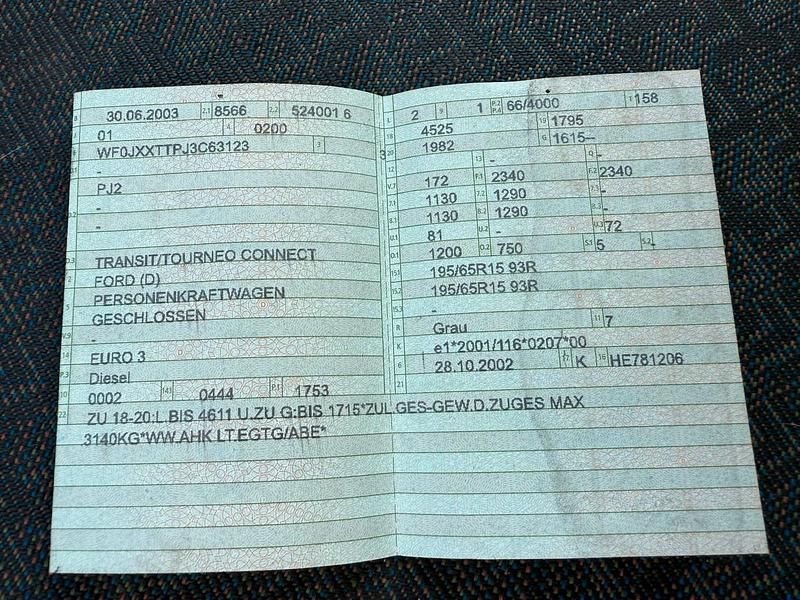 B 30.06.2003 2.1 8566 2.2 524001 6
01 4 0200
WF0JXXTTPJ3C63123 3 3
-
PJ2
-
-
D.3 TRANSIT/TOURNEO CONNECT
2 FORD (D)
5 PERSONENKRAFTWAGEN
GESCHLOSSEN
V.9 -
14 EURO 3
P.3 Diesel
10 0002 14.1 0444 P.1 1753
22 ZU 18-20:L.BIS 4611 U.ZU G:BIS 1715*ZUL.GES-GEW.D.ZUGES MAX
3140KG*WW.AHK LT.EGTG/ABE*
L 2 9 1 P.2 P.4 66/4000 T 158
18 4525 19 1795
20 1982 G 1615--
12 - 13 - Q -
V.7 172 F.1 2340 F.2 2340
7.1 1130 7.2 1290 7.3 -
8.1 1130 8.2 1290 8.3 -
U.1 81 U.2 - U.3 72
O.1 1200 O.2 750 S.1 5 S.2 -
15.1 195/65R15 93R
15.2 195/65R15 93R
15.3 -
R Grau 11 7
K e1*2001/116*0207*00
6 28.10.2002 17 K 16 HE781206
21